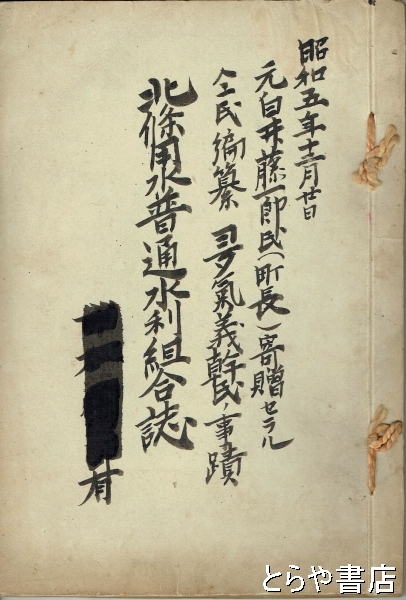 昭和五年十二月廿日
元白井藤一郎氏(町長)寄贈セラル
仝氏編纂 多氣義幹氏ノ事蹟
北條用水普通水利組合誌
有
とらや書店